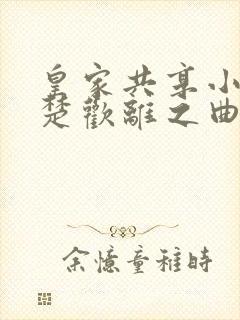 皇家共享小
楚歡離之曲
余憶童稚時